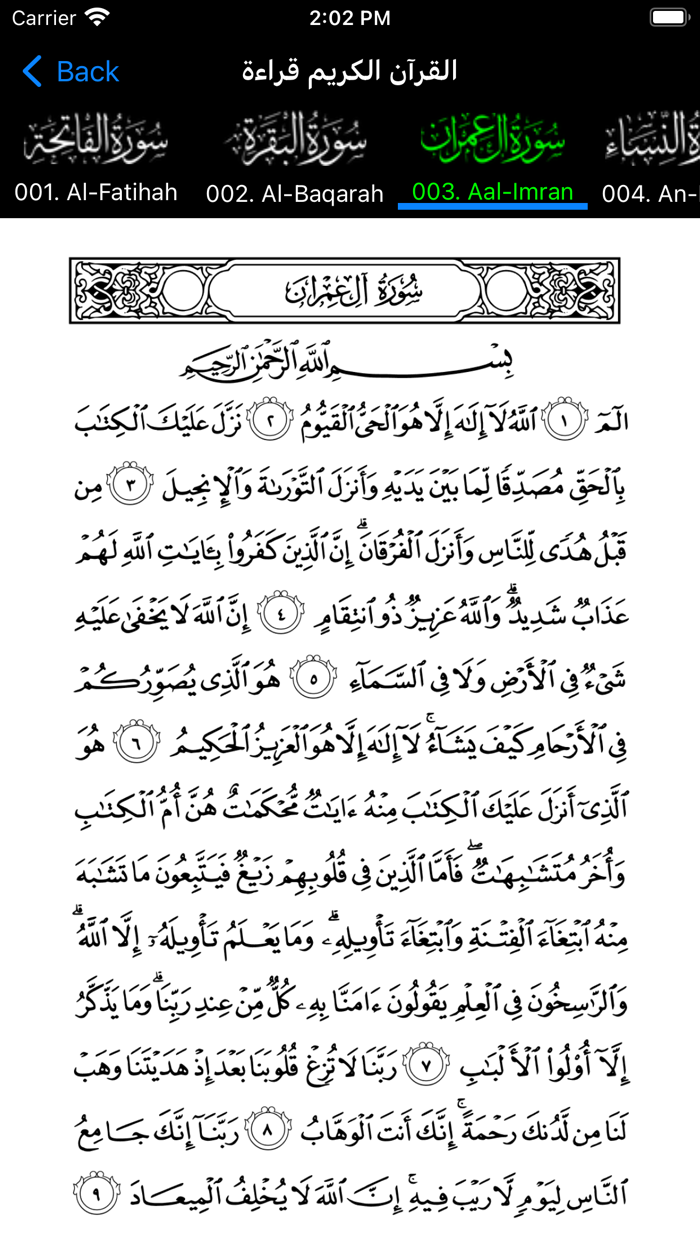 Carrier 2:02 PM
Back القرآن الكريم قراءة
سورة الفاتحة سورة البقرة سورة آل عمران سورة النساء
001. Al-Fatihah 002. Al-Baqarah 003. Aal-Imran 004. An-
سُورَةُ آلِ عِمۡرَانَ
بِسۡمِ ٱللَّهِ ٱلرَّحۡمَٰنِ ٱلرَّحِيمِ
الٓمٓ ١ ٱللَّهُ لَآ إِلَٰهَ إِلَّا هُوَ ٱلۡحَيُّ ٱلۡقَيُّومُ ٢ نَزَّلَ عَلَيۡكَ ٱلۡكِتَٰبَ
بِٱلۡحَقِّ مُصَدِّقٗا لِّمَا بَيۡنَ يَدَيۡهِ وَأَنزَلَ ٱلتَّوۡرَىٰةَ وَٱلۡإِنجِيلَ ٣ مِن
قَبۡلُ هُدٗى لِّلنَّاسِ وَأَنزَلَ ٱلۡفُرۡقَانَۗ إِنَّ ٱلَّذِينَ كَفَرُواْ بِـَٔايَٰتِ ٱللَّهِ لَهُمۡ
عَذَابٞ شَدِيدٞۗ وَٱللَّهُ عَزِيزٞ ذُو ٱنتِقَامٍ ٤ إِنَّ ٱللَّهَ لَا يَخۡفَىٰ عَلَيۡهِ
شَيۡءٞ فِي ٱلۡأَرۡضِ وَلَا فِي ٱلسَّمَآءِ ٥ هُوَ ٱلَّذِي يُصَوِّرُكُمۡ
فِي ٱلۡأَرۡحَامِ كَيۡفَ يَشَآءُۚ لَآ إِلَٰهَ إِلَّا هُوَ ٱلۡعَزِيزُ ٱلۡحَكِيمُ ٦ هُوَ
ٱلَّذِيٓ أَنزَلَ عَلَيۡكَ ٱلۡكِتَٰبَ مِنۡهُ ءَايَٰتٞ مُّحۡكَمَٰتٌ هُنَّ أُمُّ ٱلۡكِتَٰبِ
وَأُخَرُ مُتَشَٰبِهَٰتٞۖ فَأَمَّا ٱلَّذِينَ فِي قُلُوبِهِمۡ زَيۡغٞ فَيَتَّبِعُونَ مَا تَشَٰبَهَ
مِنۡهُ ٱبۡتِغَآءَ ٱلۡفِتۡنَةِ وَٱبۡتِغَآءَ تَأۡوِيلِهِۦۗ وَمَا يَعۡلَمُ تَأۡوِيلَهُۥٓ إِلَّا ٱللَّهُۗ
وَٱلرَّٰسِخُونَ فِي ٱلۡعِلۡمِ يَقُولُونَ ءَامَنَّا بِهِۦ كُلّٞ مِّنۡ عِندِ رَبِّنَاۗ وَمَا يَذَّكَّرُ
إِلَّآ أُوْلُواْ ٱلۡأَلۡبَٰبِ ٧ رَبَّنَا لَا تُزِغۡ قُلُوبَنَا بَعۡدَ إِذۡ هَدَيۡتَنَا وَهَبۡ
لَنَا مِن لَّدُنكَ رَحۡمَةًۚ إِنَّكَ أَنتَ ٱلۡوَهَّابُ ٨ رَبَّنَآ إِنَّكَ جَامِعُ
ٱلنَّاسِ لِيَوۡمٖ لَّا رَيۡبَ فِيهِۚ إِنَّ ٱللَّهَ لَا يُخۡلِفُ ٱلۡمِيعَادَ ٩